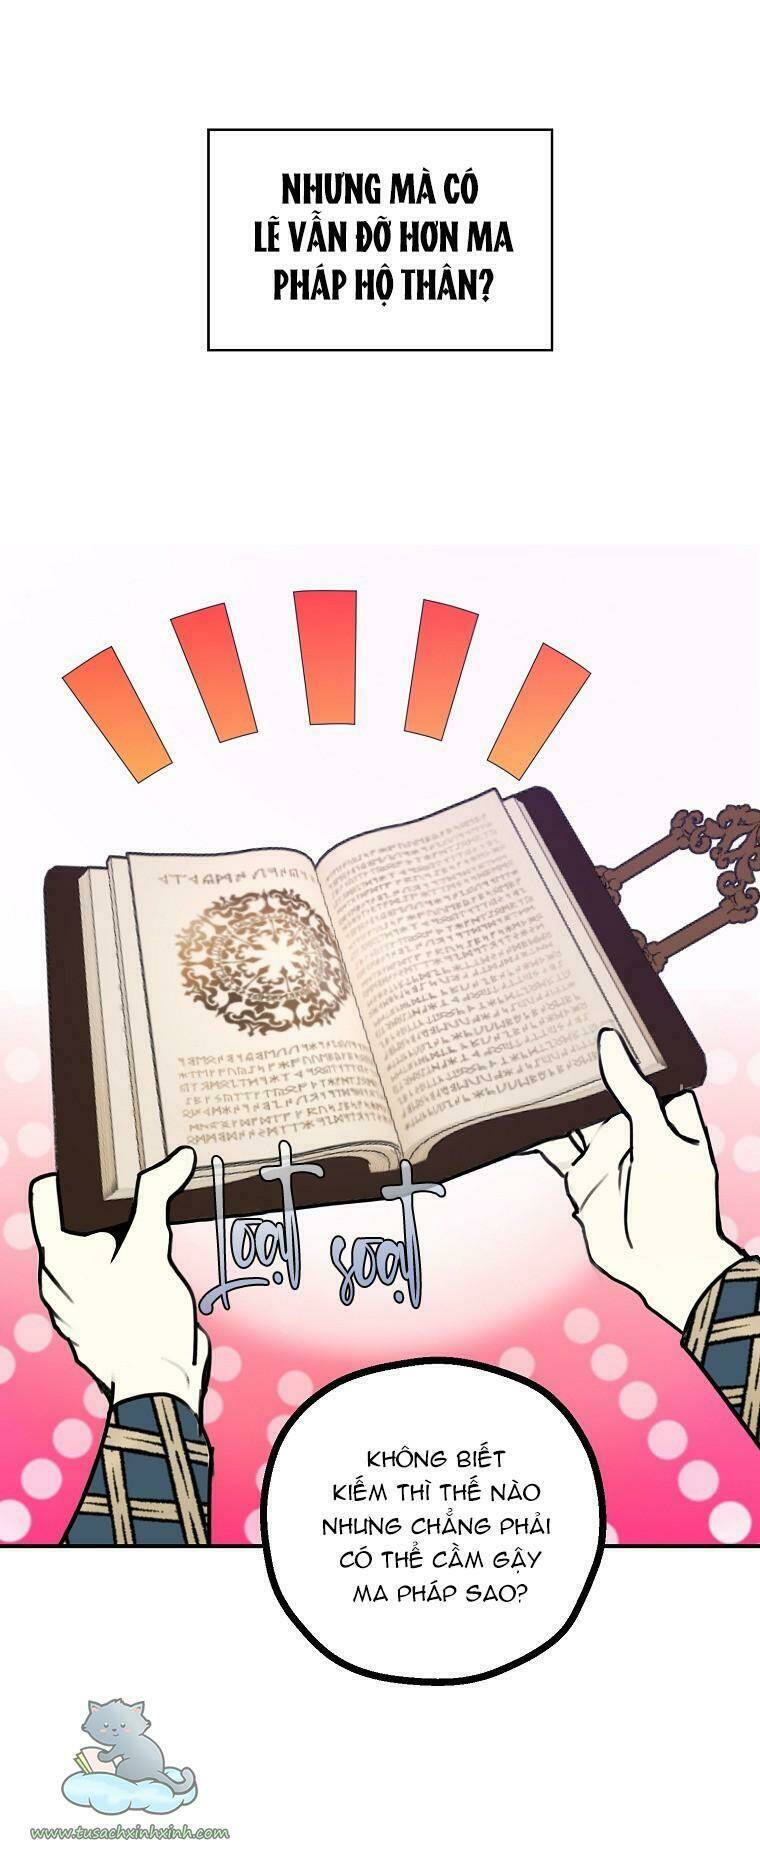 NHƯNG MÀ CÓ
LẼ VẪN ĐỠ HƠN MA
PHÁP HỘ THÂN?
Loạt soạt
KHÔNG BIẾT
KIẾM THÌ THẾ NÀO
NHƯNG CHẲNG PHẢI
CÓ THỂ CẦM GẬY
MA PHÁP SAO?
www.tusachxinhxinh.com